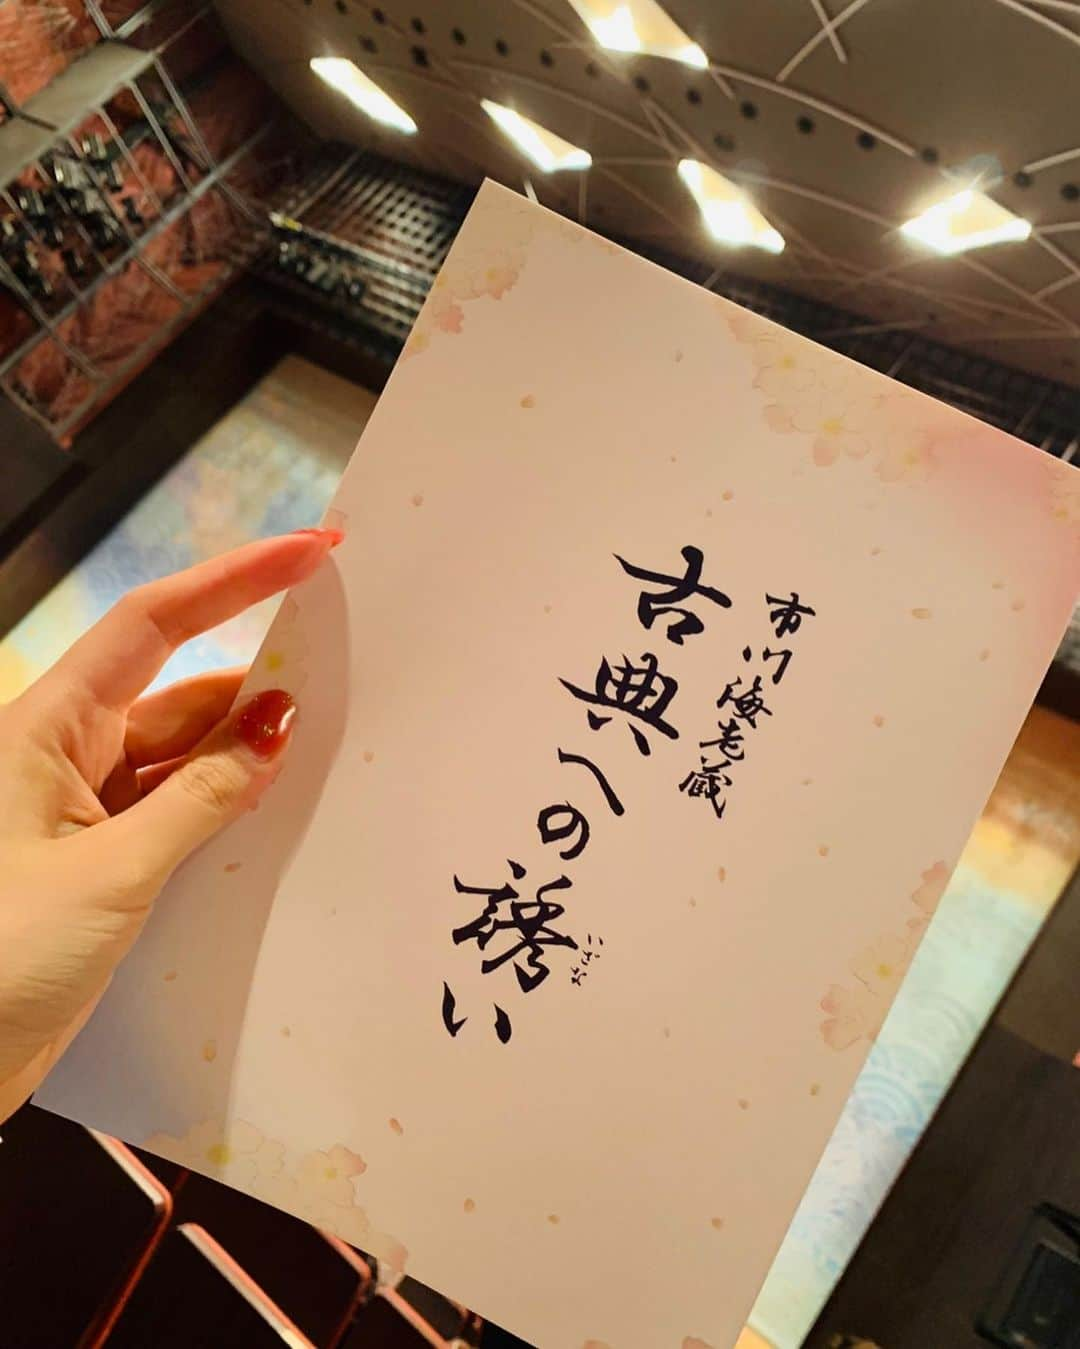 市川海老蔵
古典への誘い
いざな